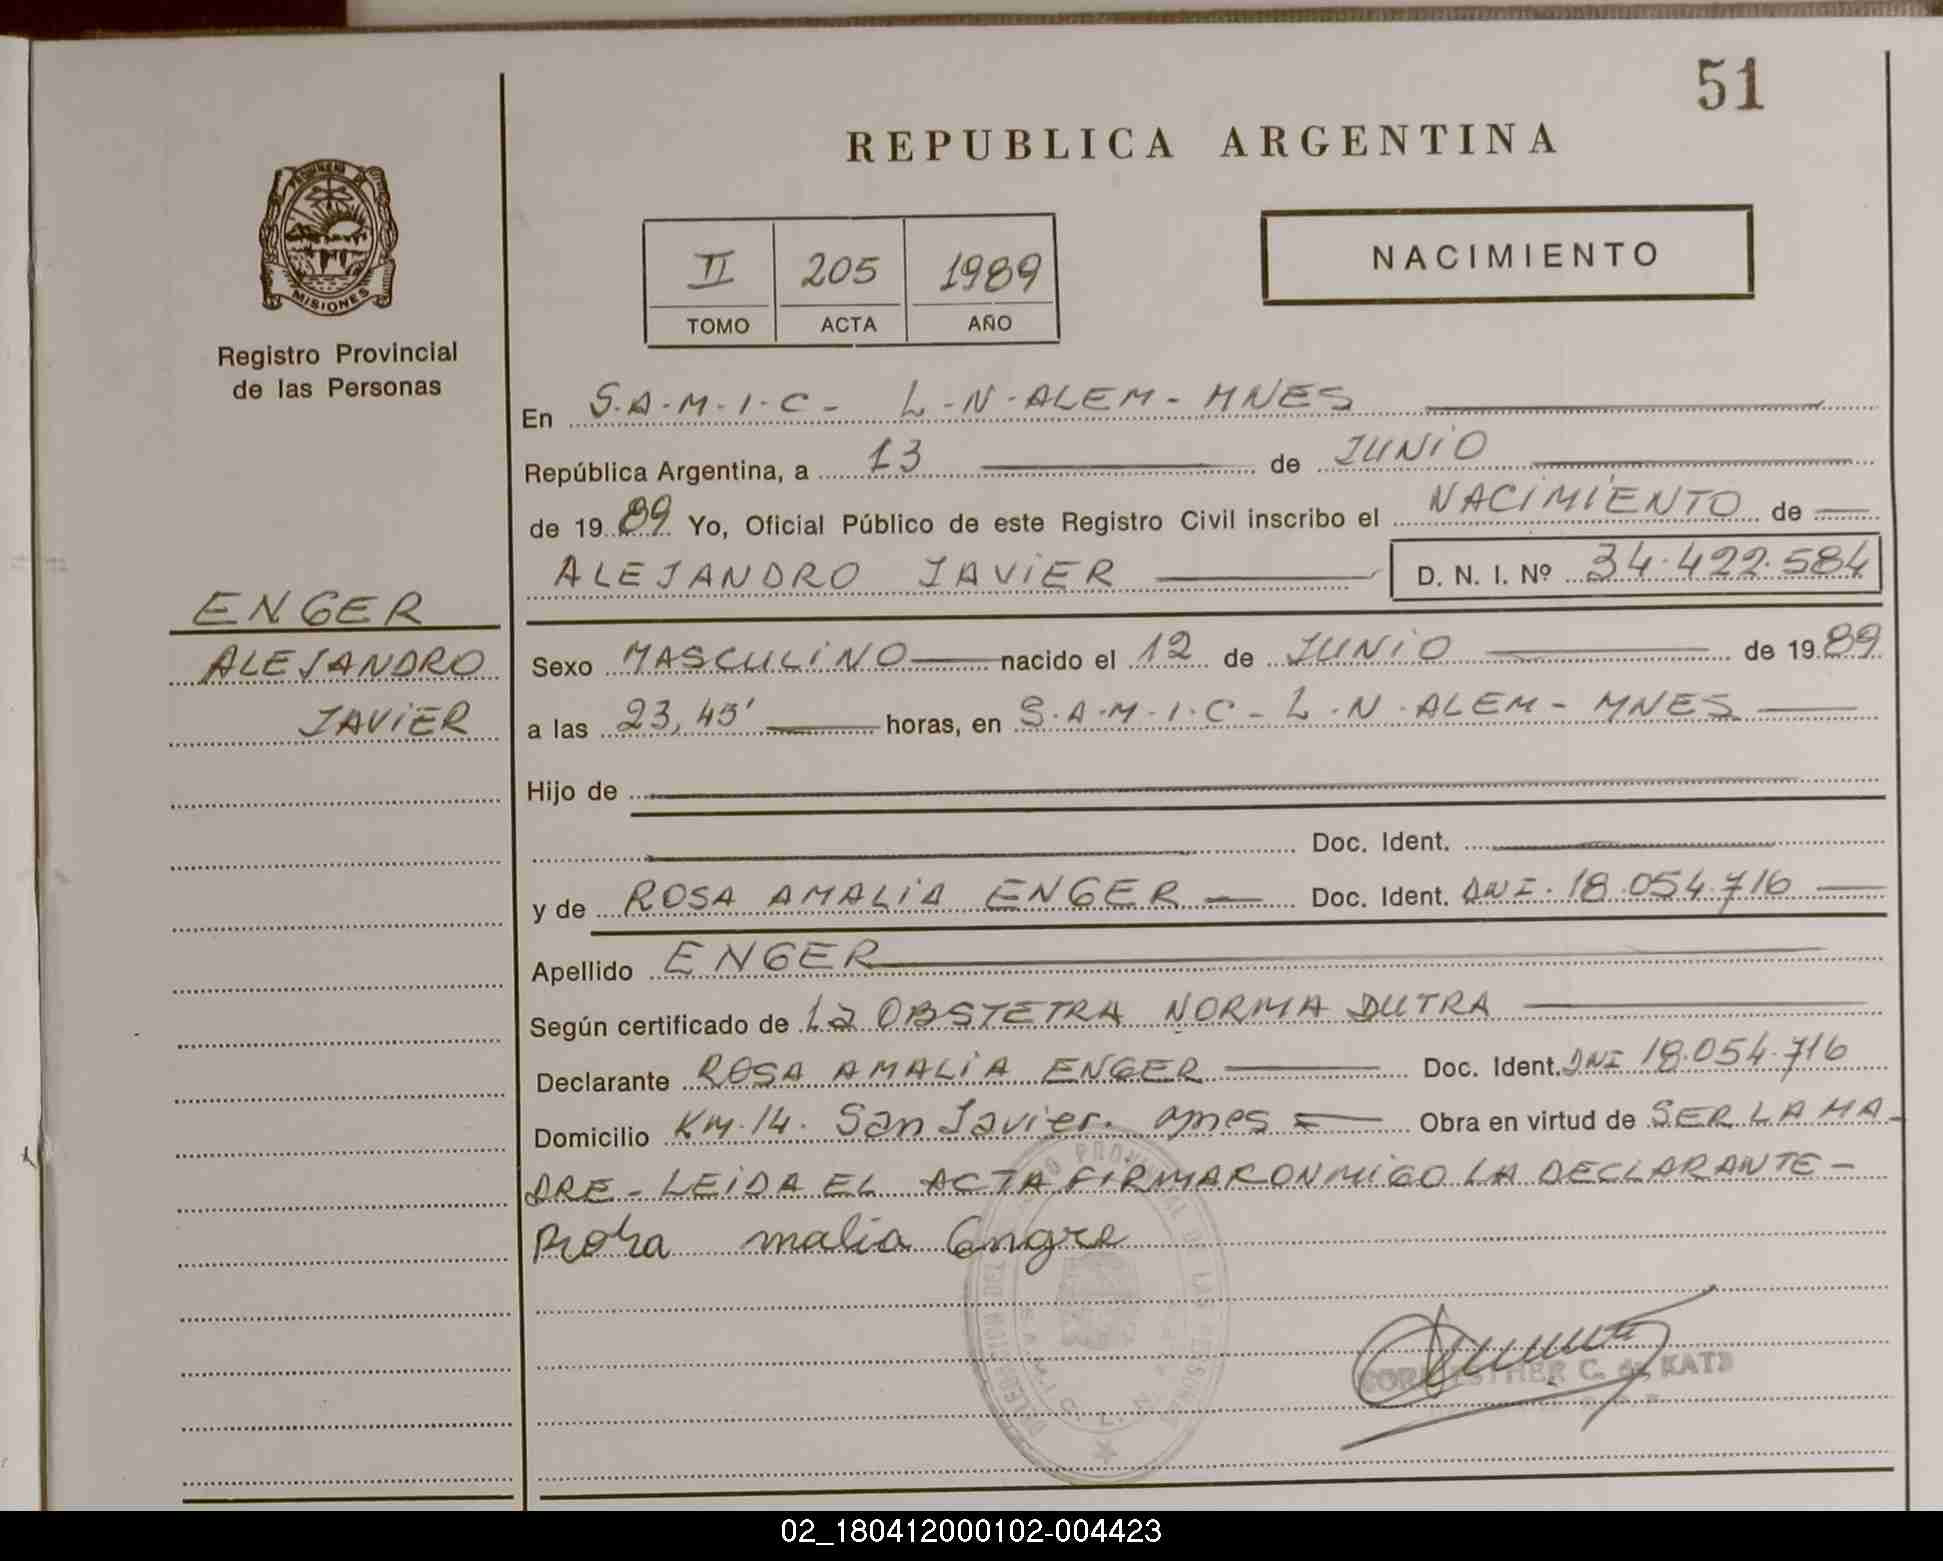 51
REPUBLICA ARGENTINA
PROVINCIA DE
MISIONES
Registro Provincial
de las Personas
NACIMIENTO
II 205 1989
TOMO ACTA AÑO
En S.A.M.I.C- L-N-ALEM-MNES
República Argentina, a 13 de JUNIO
de 1989 Yo, Oficial Público de este Registro Civil inscribo el NACIMIENTO de
ALEJANDRO JAVIER D. N. I. Nº 34.422.584
ENGER
ALEJANDRO
JAVIER
Sexo MASCULINO nacido el 12 de JUNIO de 1989
a las 23,45' horas, en S.A.M.I.C-L.N.ALEM-MNES
Hijo de
Doc. Ident.
y de ROSA AMALIA ENGER Doc. Ident. DNI.18.054.716
Apellido ENGER
Según certificado de La OBSTETRA NORMA DUTRA
Declarante ROSA AMALIA ENGER Doc. Ident. DNI 18.054.716
Domicilio KM.14. San Javier. Obra en virtud de SER LA MA-
DRE-LEIDA EL ACTA FIRMA CONMIGO LA DECLARANTE-
malia Engre
ESTHER C. de KATZ
02_180412000102-004423